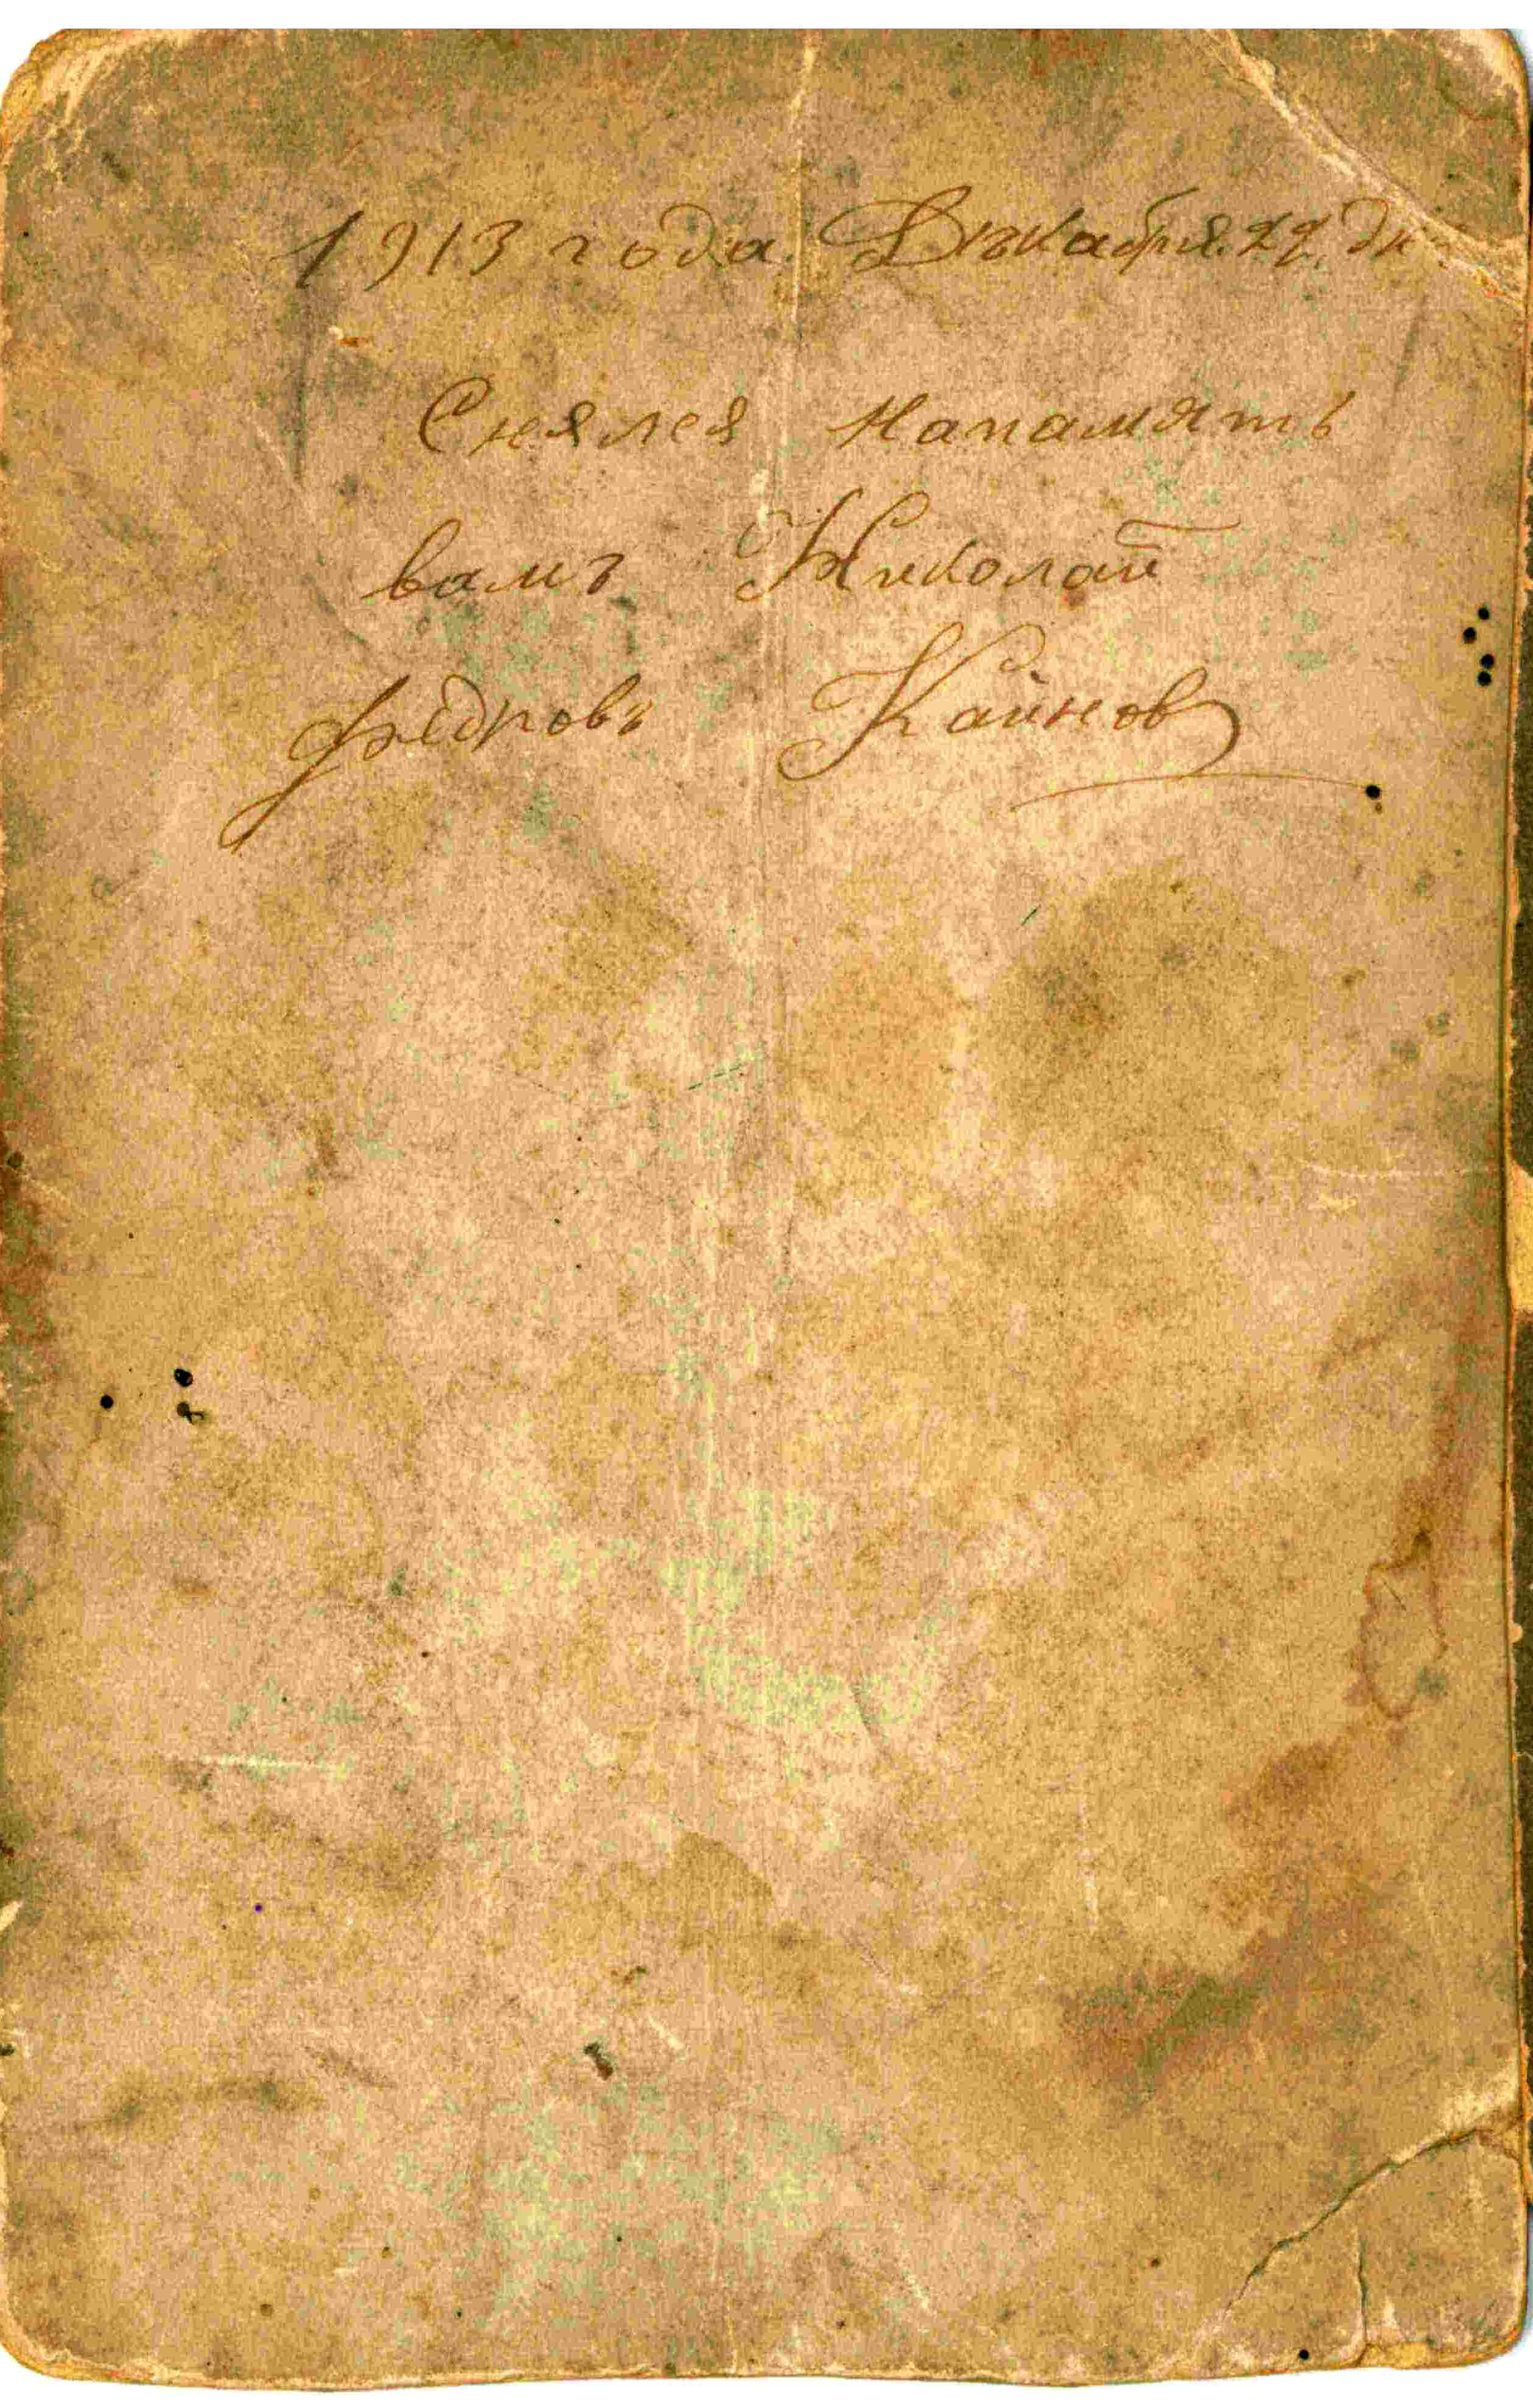 1913 года. Дѣкабря. 22, дн
Снялся напамять
вамъ Николай
Федровъ Каинов